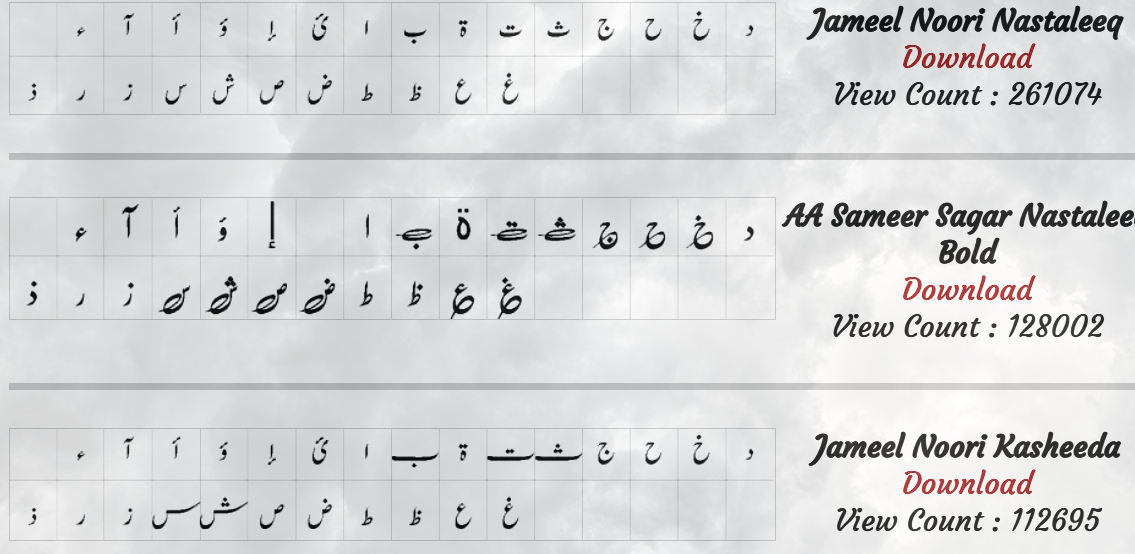 ء آ أ ؤ إ ئ ا ب ة ت ث ج ح خ د
ذ ر ز س ش ص ض ط ظ ع غ
Jameel Noori Nastaleeq
Download
View Count : 261074
ء آ أ ؤ إ ا ب ة ت ث ج ح خ د
ذ ر ز س ش ص ض ط ظ ع غ
AA Sameer Sagar Nastalee
Bold
Download
View Count : 128002
ء آ أ ؤ إ ئ ا ب ة ت ث ج ح خ د
ذ ر ز س ش ص ض ط ظ ع غ
Jameel Noori Kasheeda
Download
View Count : 112695